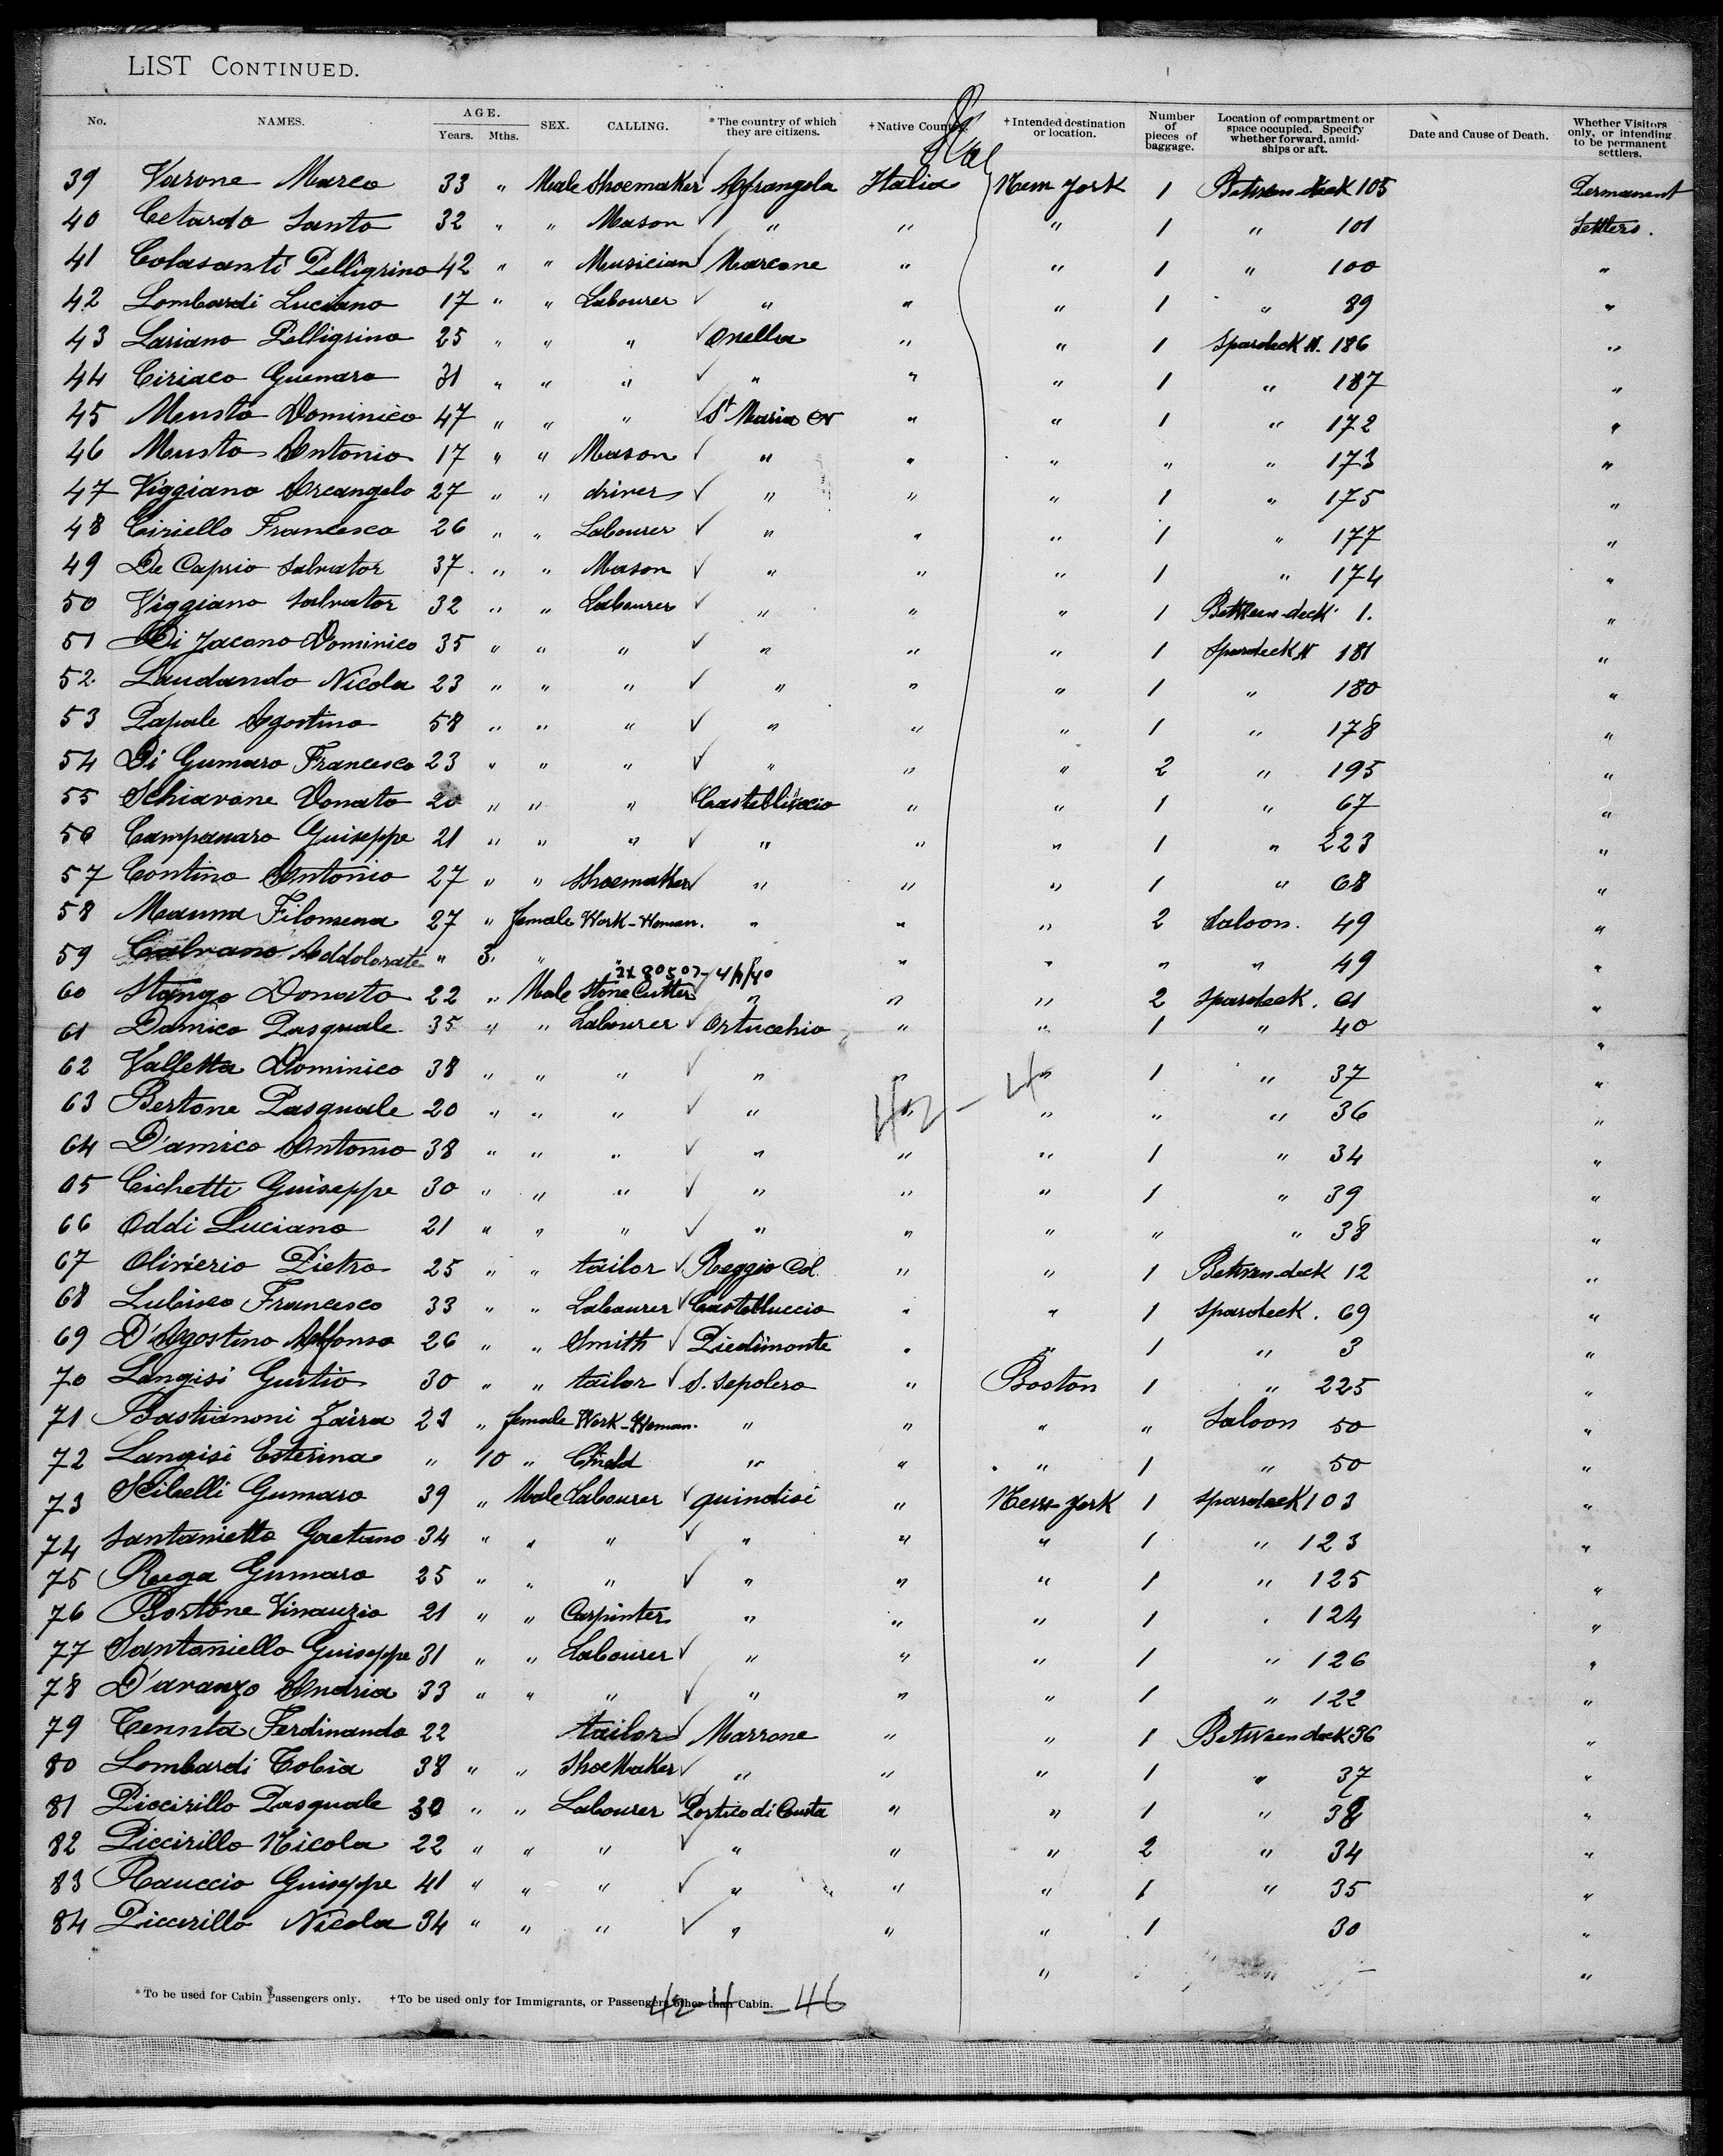 LIST CONTINUED.
No. NAMES. AGE. Years. Mths. SEX. CALLING. *The country of which they are citizens. +Native Country. +Intended destination or location. Number of pieces of baggage. Location of compartment or space occupied. Specify whether forward, amidships or aft. Date and Cause of Death. Whether Visitors only, or intending to be permanent settlers.
39 Varone Marco 33 " Male Shoemaker Afrangola Italia New York 1 Between deck 105 Permanent
40 Cetardo Santo 32 " " Mason " " " 1 " 101 Settlers.
41 Colasanti Pelligrino 42 " " Musician Marcone " " 1 " 100 "
42 Lombardi Luciano 17 " " Labourer " " " 1 " 89 "
43 Lariano Pelligrino 25 " " " Onella " " 1 Spardeck N. 186 "
44 Ciriaco Guenaro 31 " " " " " " 1 " 187 "
45 Mensto Dominico 47 " " " St Maria " " 1 " 172 "
46 Musto Antonio 17 " " Mason " " " " " 173 "
47 Viggiano Arcangelo 27 " " driver " " " 1 " 175 "
48 Ciriello Francesco 26 " " Labourer " " " 1 " 177 "
49 De Caprio Salvator 37 " " Mason " " " 1 " 174 "
50 Viggiano Salvator 32 " " Labourer " " " 1 Between-deck 1. "
51 Di Jacono Dominico 35 " " " " " " 1 Spardeck N 181 "
52. Laudando Nicola 23 " " " " " " 1 " 180 "
53 Papale Agostino 58 " " " " " " 1 " 178 "
54 Di Gumaro Francesco 23 " " " " " " 2 " 195 "
55 Schiavone Donato 20 " " " Castelluccio " " 1 " 67 "
56 Campanaro Guiseppe 21 " " " " " " 1 " 223 "
57 Contino Antonio 27 " " Shoemaker " " " 1 " 68 "
58 Mauna Filomena 27 " female Work-Woman. " " " 2 Saloon. 49 "
59 Calvano Addolorate " 3 " " " " " " " 49 "
2x 80507-4/4/40
60 Stango Donato 22 " Male Stone Cutter " " " 2 Spardeck. 61 "
61 Damico Pasquale 35 " " Labourer Ortucchio " " 1 " 40 "
62 Valletta Dominico 38 " " " " " " 1 " 37 "
63 Bertone Pasquale 20 " " " " " " " " 36 "
42 - 4
64 D'amico Antonio 38 " " " " " " 1 " 34 "
65 Cichetti Guiseppe 30 " " " " " " 1 " 39 "
66 Oddi Luciano 21 " " " " " " " " 38 "
67 Olivierio Pietro 25 " " tailor Reggio Col. " " 1 Between-deck 12 "
68 Lubisco Francesco 33 " " Labourer Castelluccio " " 1 Spardeck. 69 "
69 D'Agostino Alfonso 26 " " Smith Piedimonte " " 1 " 3 "
70 Langisi Guitio 30 " " tailor S. Sepolero " Boston 1 " 225 "
71 Bastianoni Zaira 23 " female Work-Woman. " " " " Saloon 50 "
72 Langisi Esterina " 10 " Child " " " 1 " 50 "
73 Scibelli Gumaro 39 " Male Labourer quindisi " New-York 1 Spardeck 103 "
74 Santanietto Gaetano 34 " " " " " " 1 " 123 "
75 Rega Gumaro 25 " " " " " " 1 " 125 "
76 Bortone Vinauzio 21 " " Carpinter " " " 1 " 124 "
77 Santoniello Guiseppe 31 " " Labourer " " " 1 " 126 "
78 D'aranzo Andria 33 " " " " " " 1 " 122 "
79 Tennta Ferdinando 22 tailor Marrone " " 1 Between deck 36 "
80 Lombardi Tobia 38 " " ShoeMaker " " " 1 " 37 "
81 Piccirillo Pasquale 30 " " Labourer Portico di Custa " " 1 " 38 "
82 Piccirillo Nicola 22 " " " " " " 2 " 34 "
83 Rauccio Guiseppe 41 " " " " " " 1 " 35 "
84 Piccirillo Nicola 34 " " " " " " 1 30 "
" "
*To be used for Cabin Passengers only. +To be used only for Immigrants, or Passengers other than Cabin.
42-4 - 46